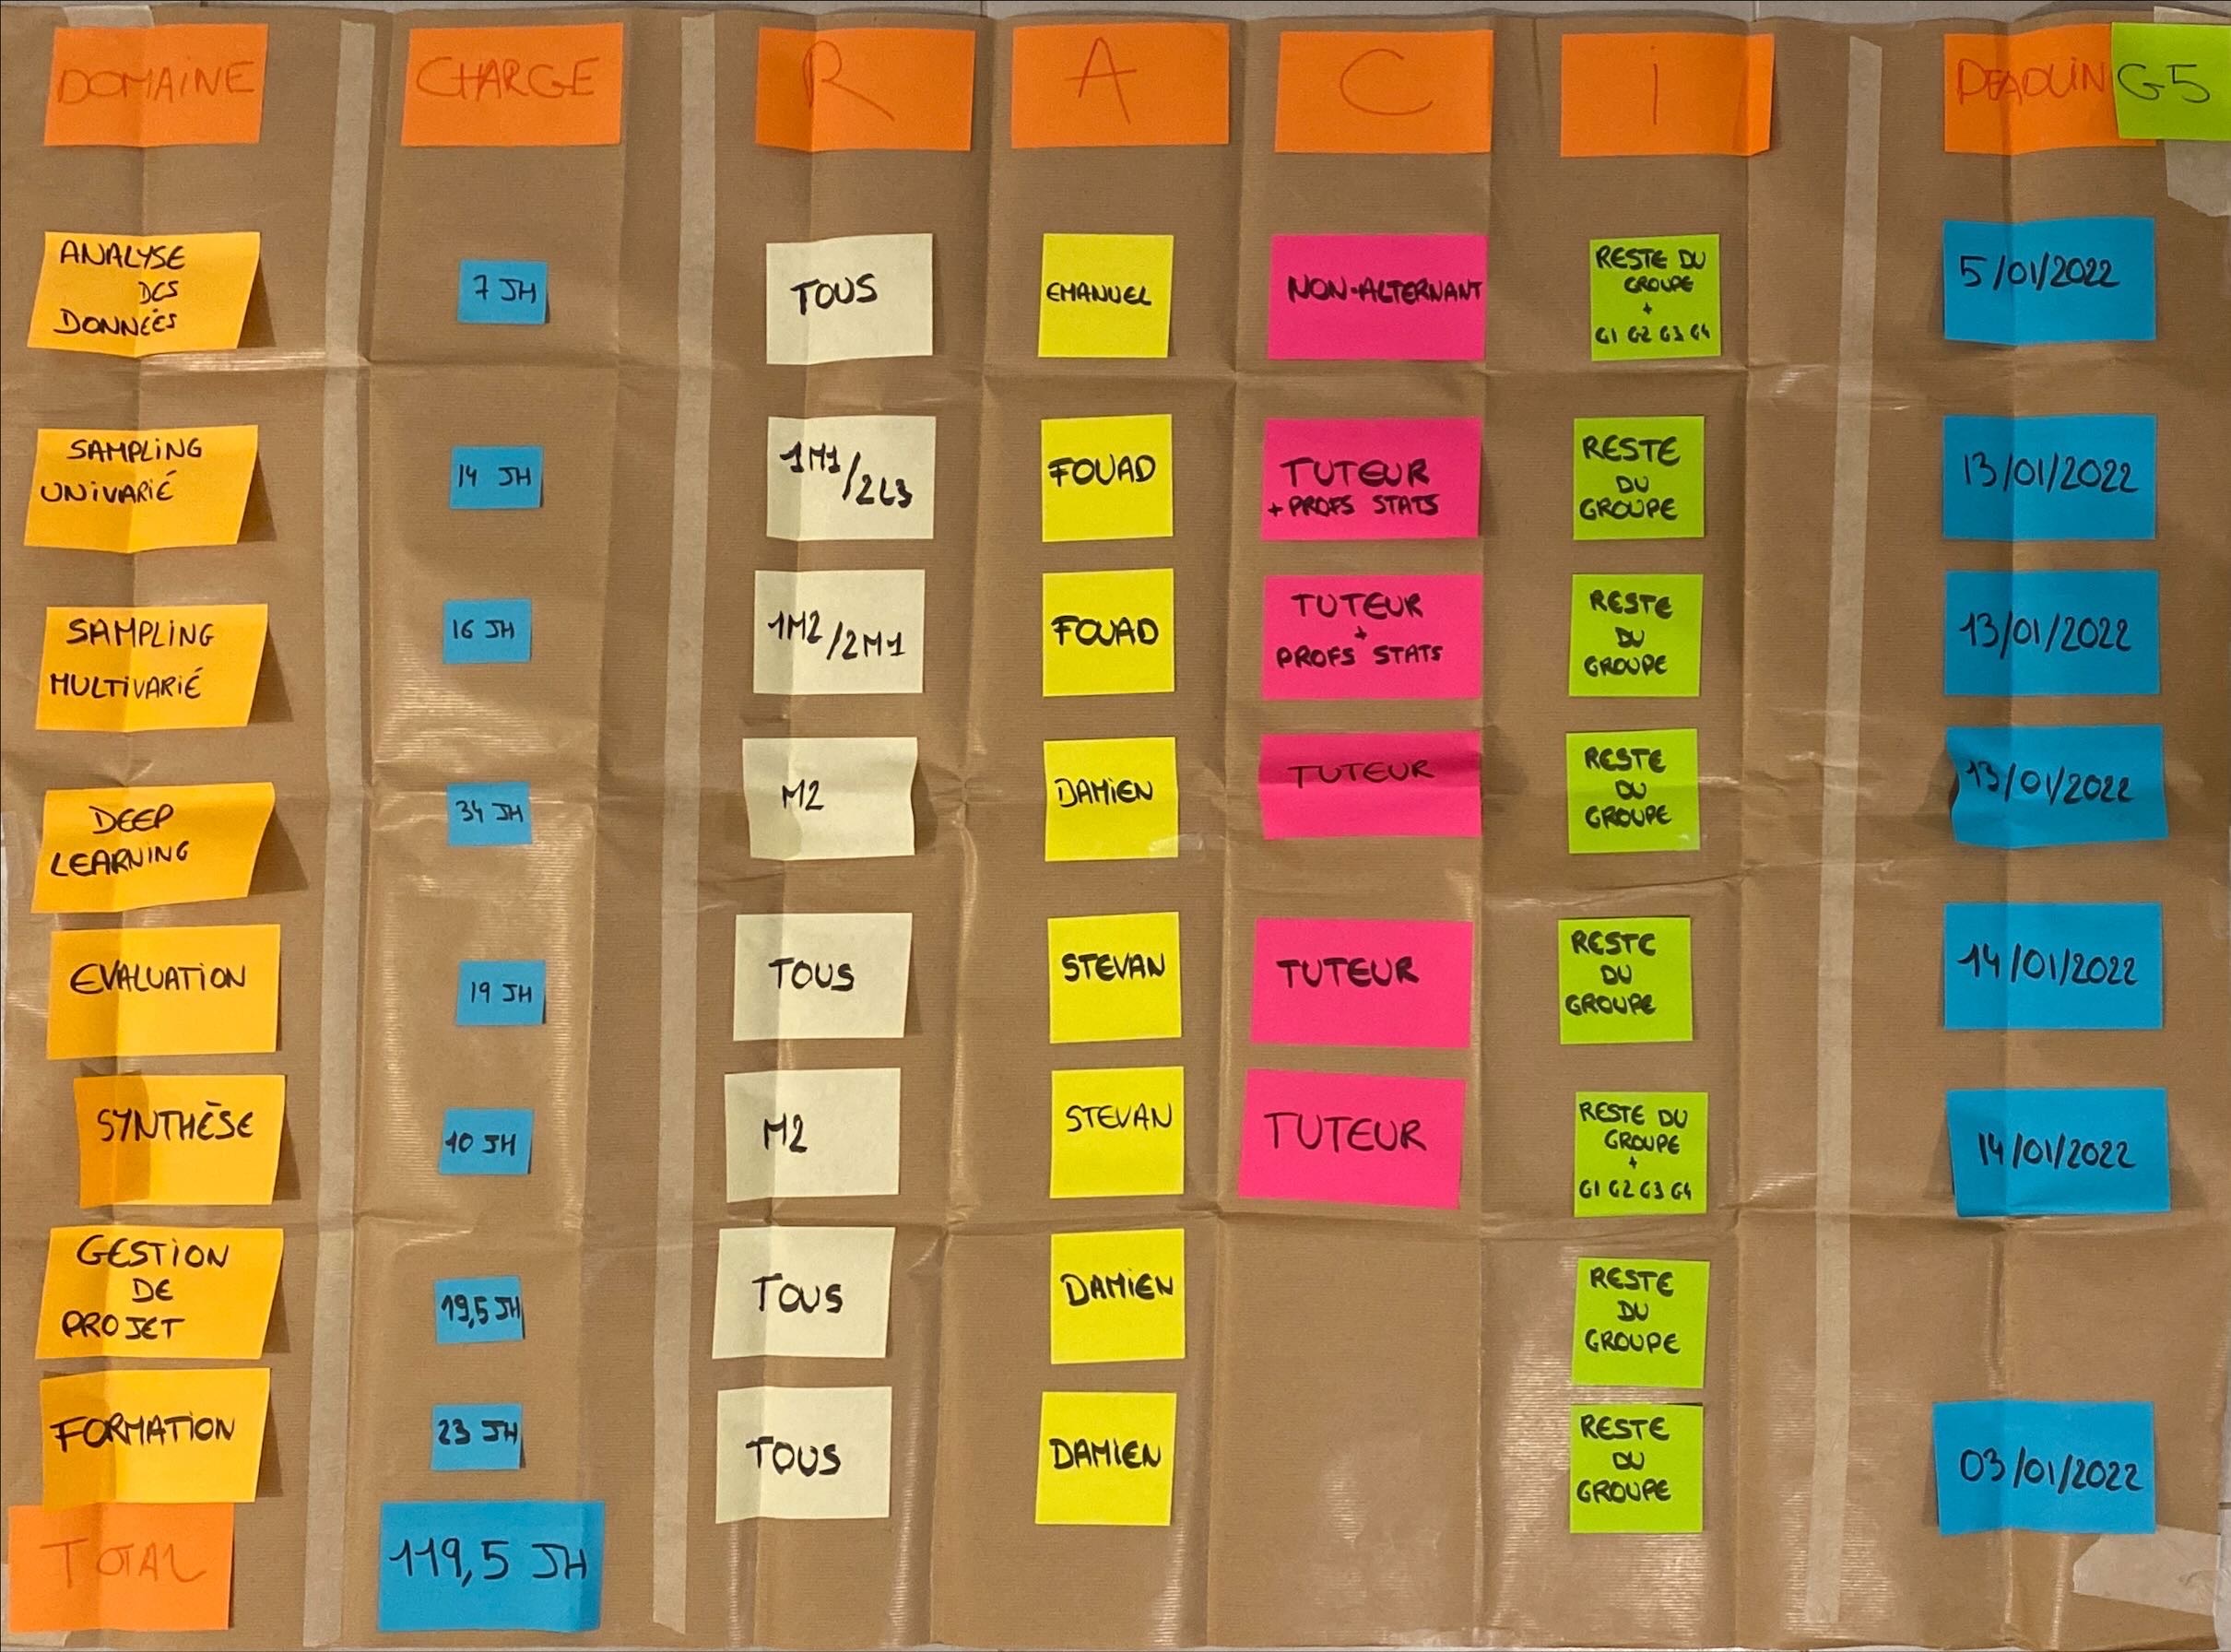 DOMAiNE
CHARGE
R
A
C
i
DEADLiN
G5
ANALYSE
DES
DONNÉES
7 JH
TOUS
EMANUEL
NON-ALTERNANT
RESTE DU
GROUPE
+
G1 G2 G3 G4
5/01/2022
SAMPLiNG
UNiVARiÉ
14 JH
1M1/2L3
FOUAD
TUTEUR
+ PROFS STATS
RESTE
DU
GROUPE
13/01/2022
SAMPLiNG
MULTiVARiÉ
16 JH
1M2/2M1
FOUAD
TUTEUR
+
PROFS STATS
RESTE
DU
GROUPE
13/01/2022
DEEP
LEARNiNG
34 JH
M2
DAMiEN
TUTEUR
RESTE
DU
GROUPE
13/01/2022
EVALUATiON
19 JH
TOUS
STEVAN
TUTEUR
RESTE
DU
GROUPE
14/01/2022
SYNTHÈSE
10 JH
M2
STEVAN
TUTEUR
RESTE DU
GROUPE
+
G1 G2 G3 G4
14/01/2022
GESTiON
DE
PROJET
19,5 JH
TOUS
DAMiEN
RESTE
DU
GROUPE
FORMATiON
23 JH
TOUS
DAMiEN
RESTE
DU
GROUPE
03/01/2022
TOTAL
119,5 JH